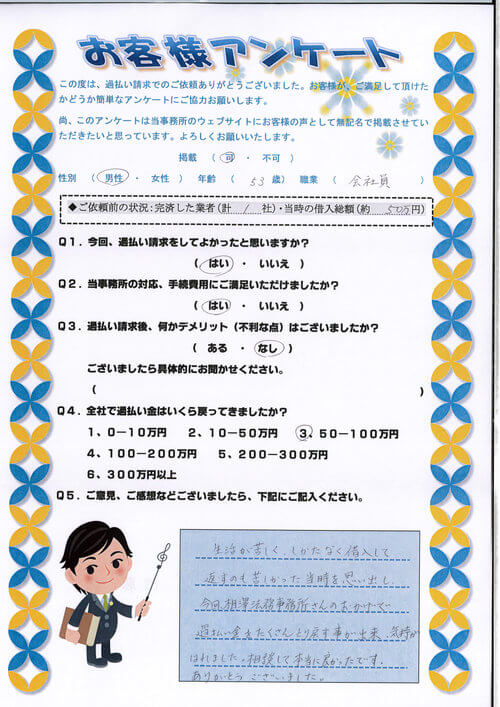 お客様アンケート
この度は、過払い請求でのご依頼ありがとうございました。お客様が、ご満足して頂けた
かどうか簡単なアンケートにご協力お願いします。
尚、このアンケートは当事務所のウェブサイトにお客様の声として無記名で掲載させてい
ただきたいと思っています。よろしくお願いいたします。
掲載 ( 可 ・ 不可 )
性別 ( 男性 ・ 女性 ) 年齢 ( 53 歳) 職業 ( 会社員 )
◆ご依頼前の状況:完済した業者(計 1 社)・当時の借入総額(約 50万円)
Q1.今回、過払い請求をしてよかったと思いますか?
( はい ・ いいえ )
Q2.当事務所の対応、手続費用にご満足いただけましたか?
( はい ・ いいえ )
Q3.過払い請求後、何かデメリット(不利な点)はございましたか?
( ある ・ なし )
ございましたら具体的にお聞かせください。
( )
Q4.全社で過払い金はいくら戻ってきましたか?
1、0-10万円 2、10-50万円 3、50-100万円
4、100-200万円 5、200-300万円
6、300万円以上
Q5.ご意見、ご感想などございましたら、下記にご記入ください。
生活が苦しく、しかたなく借入して
返すのも苦しかった当時を思い出し
今回、相澤法務事務所さんのおかげで
過払い金をたくさんとり戻す事が出来、気持が
はれました。相談して本当に良かったです。
ありがとうございました。